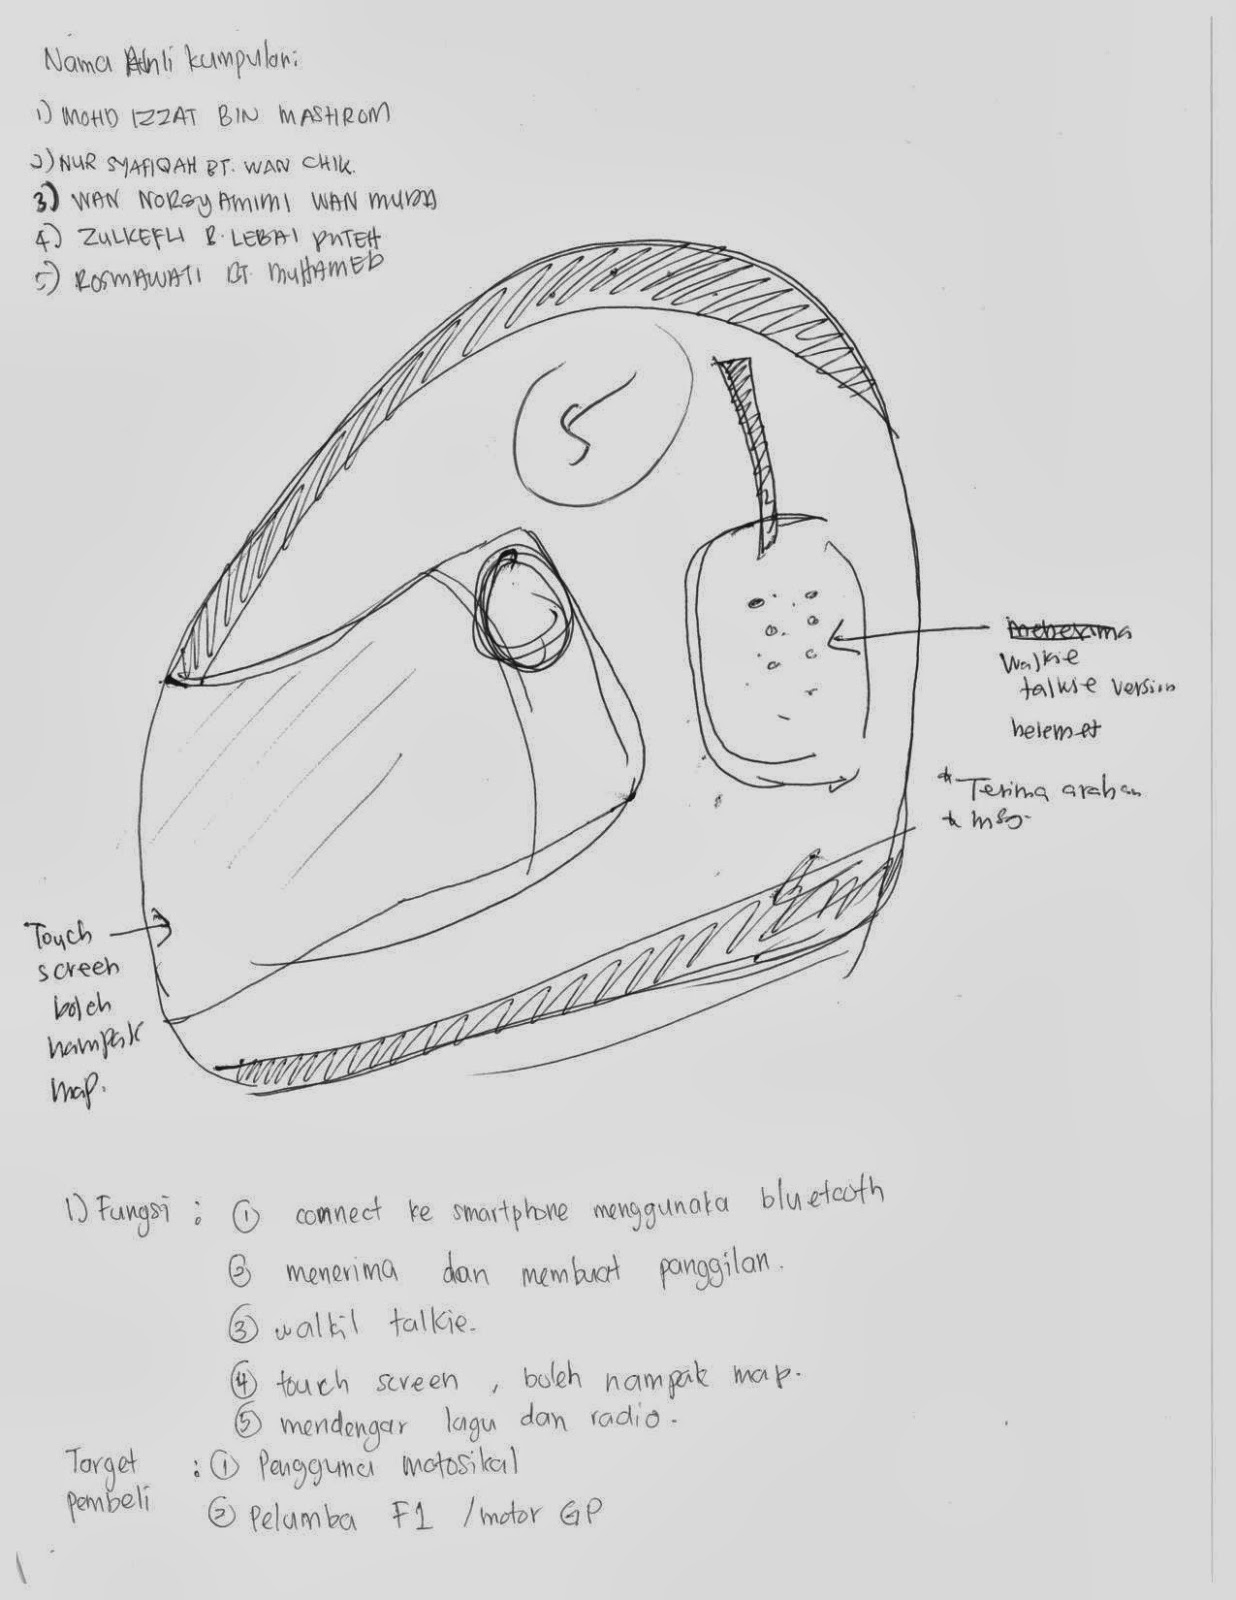 Nama Ahli kumpulan:
1) MOHD IZZAT BIN MASHROM
2) NUR SYAFIQAH BT. WAN CHIK.
3) WAN NORSYAMIMI WAN MUDA
4) ZULKEFLI B. LEBAI PUTEH
5) ROSMAWATI BT. MUHAMED
5
walkie
talkie version
helemet
* Terima arahan
* msg.
Touch
screen
boleh
nampak
map.
1) Fungsi : ① connect ke smartphone menggunaka bluetooth
② menerima dan membuat panggilan.
③ walkil talkie.
④ touch screen, boleh nampak map.
⑤ mendengar lagu dan radio.
Target : ① Pengguna motosikal
pembeli ② Pelumba F1 /motor GP